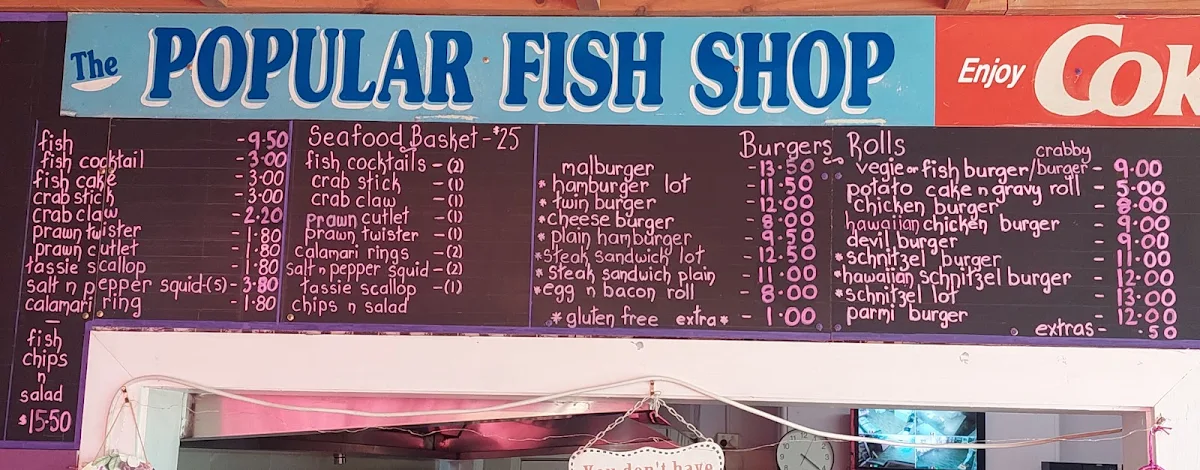 The POPULAR FISH SHOP
Enjoy Cok
fish - 9.50
fish cocktail - 3.00
fish cake - 3.00
crab stick - 3.00
crab claw - 2.20
prawn twister - 1.80
prawn cutlet - 1.80
tassie scallop - 1.80
salt n pepper squid-(s) - 3.80
calamari ring - 1.80
fish
chips
n
salad
$15.50
Seafood Basket - $25
fish cocktails - (2)
crab stick - (1)
crab claw - (1)
prawn cutlet - (1)
prawn twister - (1)
calamari rings - (2)
salt n pepper squid - (2)
tassie scallop - (1)
chips n salad
Burgers & Rolls
malburger - 13.50
* hamburger lot - 11.50
* twin burger - 12.00
* cheese burger - 8.00
* plain hamburger - 9.50
* steak sandwich lot - 12.50
* steak sandwich plain - 11.00
* egg n bacon roll - 8.00
* gluten free extra * - 1.00
crabby
vegie or fish burger/burger - 9.00
potato cake n gravy roll - 5.00
chicken burger - 8.00
hawaiian chicken burger - 9.00
devil burger - 9.00
* schnitzel burger - 11.00
* hawaiian schnitzel burger - 12.00
* schnitzel lot - 13.00
parmi burger - 12.00
extras - .50
You don't have